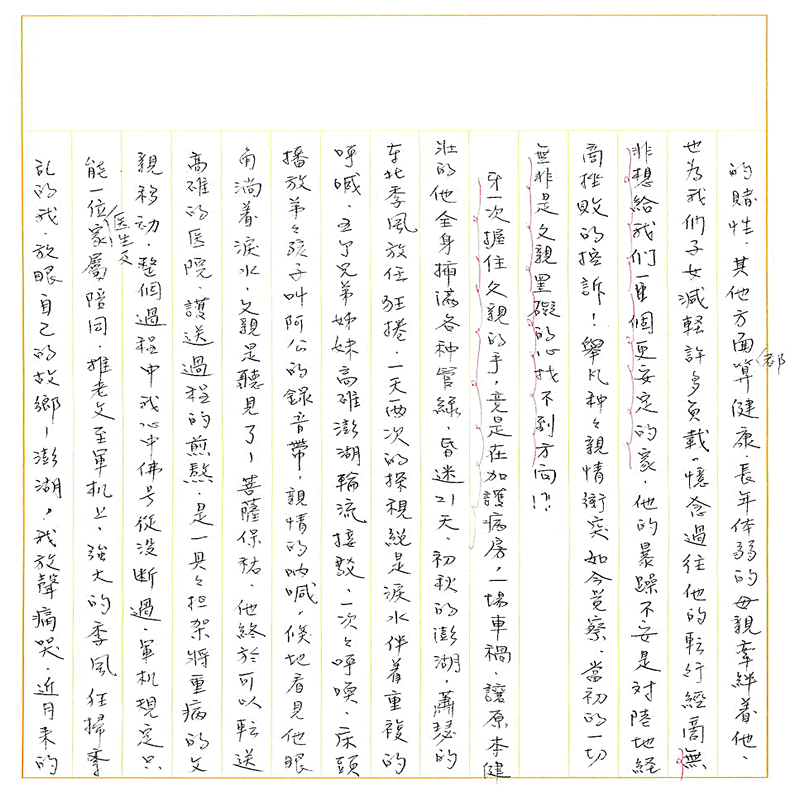 的賭性．其他方面算都健康．長年体弱的母親牽絆着他．
也為我們子女減輕許多負載。憶念過往他的転行經商無
非想給我們一個更安定的家．他的暴躁不安是対陸地経
商挫敗的控訴！舉凡種々親情衝突如今覚察．當初的一切
無非是父親罣礙的心找不到方向！？
第一次握住父親的手，竟是在加護病房，一場車禍．讓原本健
壮的他全身插滿各種管線．昏迷21天．初秋的澎湖，蕭瑟的
東北季風放任狂捲．一天両次的探視総是淚水伴着重複的
呼喊．五个兄弟姊妹高雄澎湖輪流接駁．一次々呼喚．床頭
播放弟々孩子叫阿公的錄音帶，親情的吶喊，倏地看見他眼
角淌着淚水，父親是聽見了！菩薩保祐．他終於可以転送
高雄的医院．護送過程的煎熬．是一具々担架將重病的父
親移动．整個過程中我心中佛号從沒断過．軍机規定只
能一位医生及家屬陪同．推老父至軍机上．強大的季風狂掃零
乱的我．放眼自己的故鄉－澎湖，我放聲痛哭．近月來的